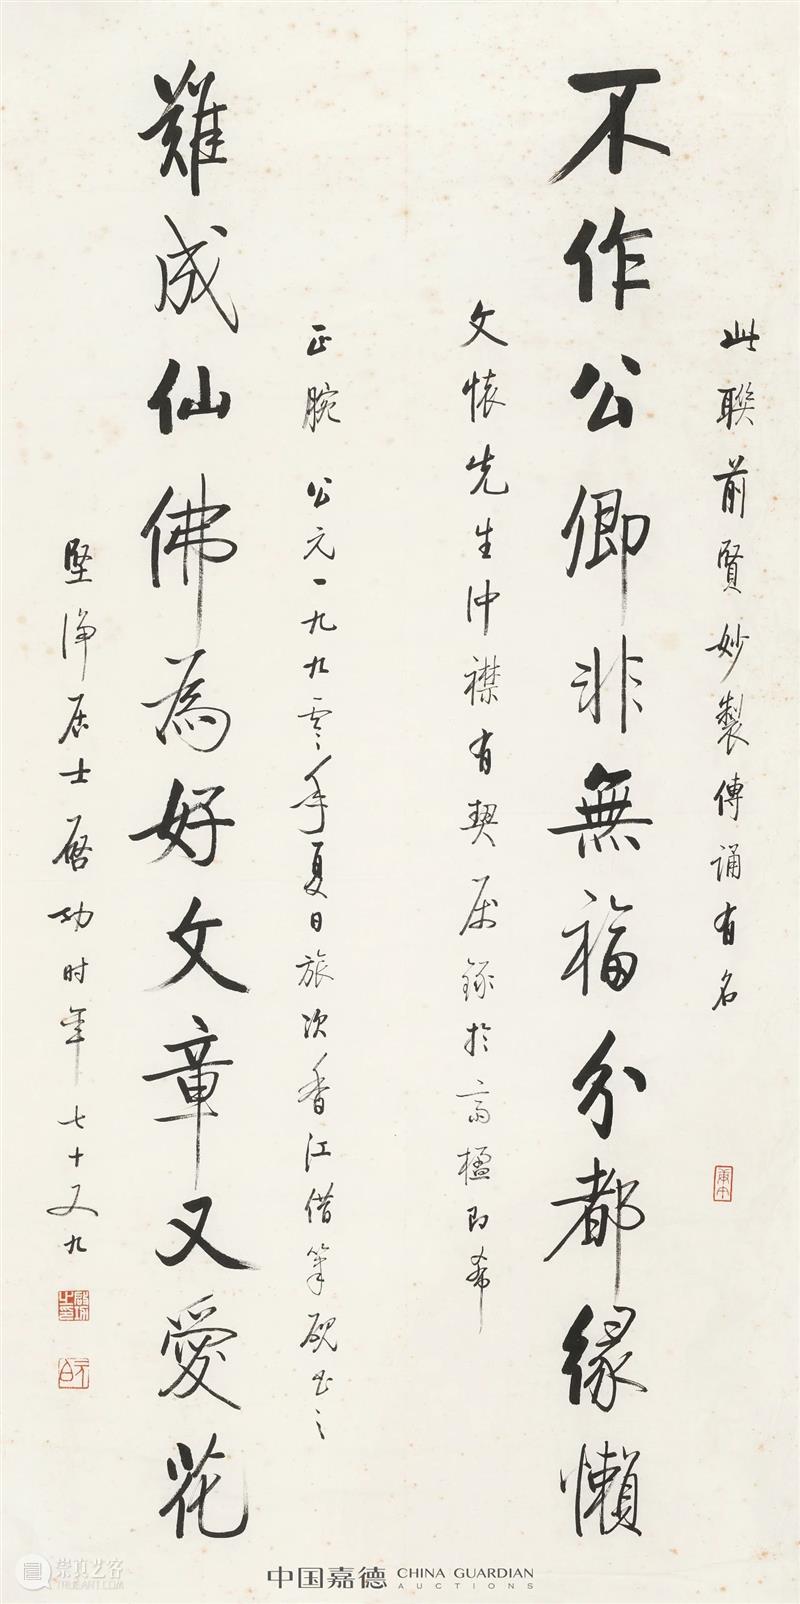 此聯前賢妙製傳誦有名
不作公卿非無福分都緣懶
文懷先生冲襟有契属録於高楹即希
正腕 公元一九九零年夏日旅次香江借筆硯書之
難成仙佛為好文章又愛花
堅淨居士啓功时年七十又九
庚午
啟功之印
元白
中国嘉德 CHINA GUARDIAN
AUCTIONS
崇真艺客
TRUEART.COM